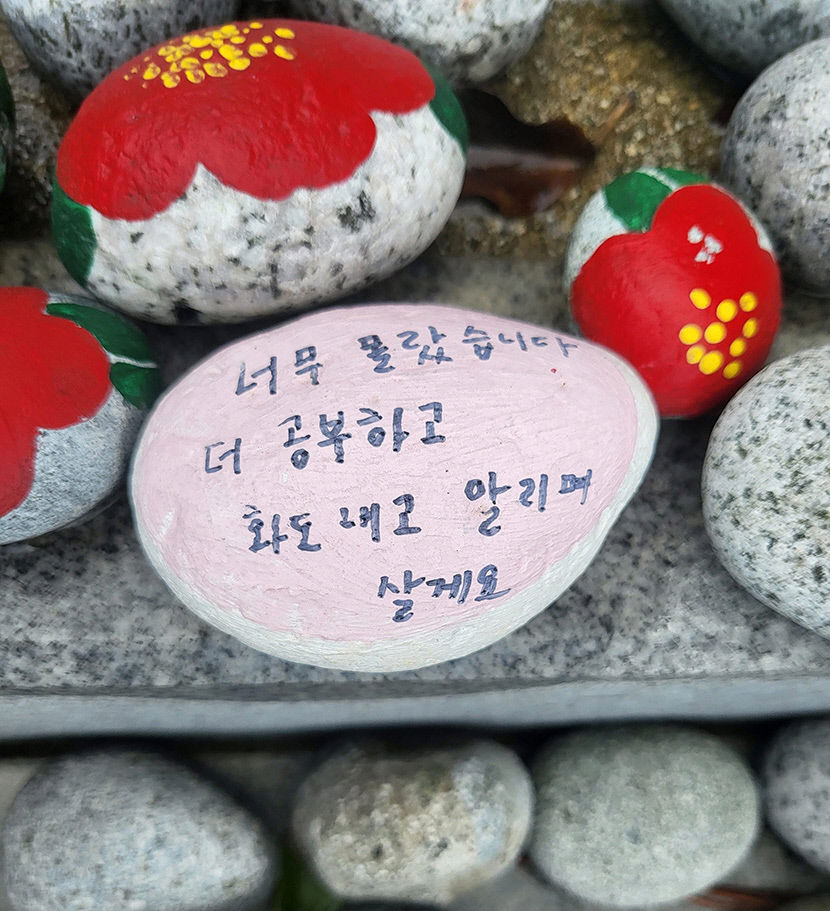 너무 몰랐습니다
더 공부하고
화도 내고 알리며
살게요